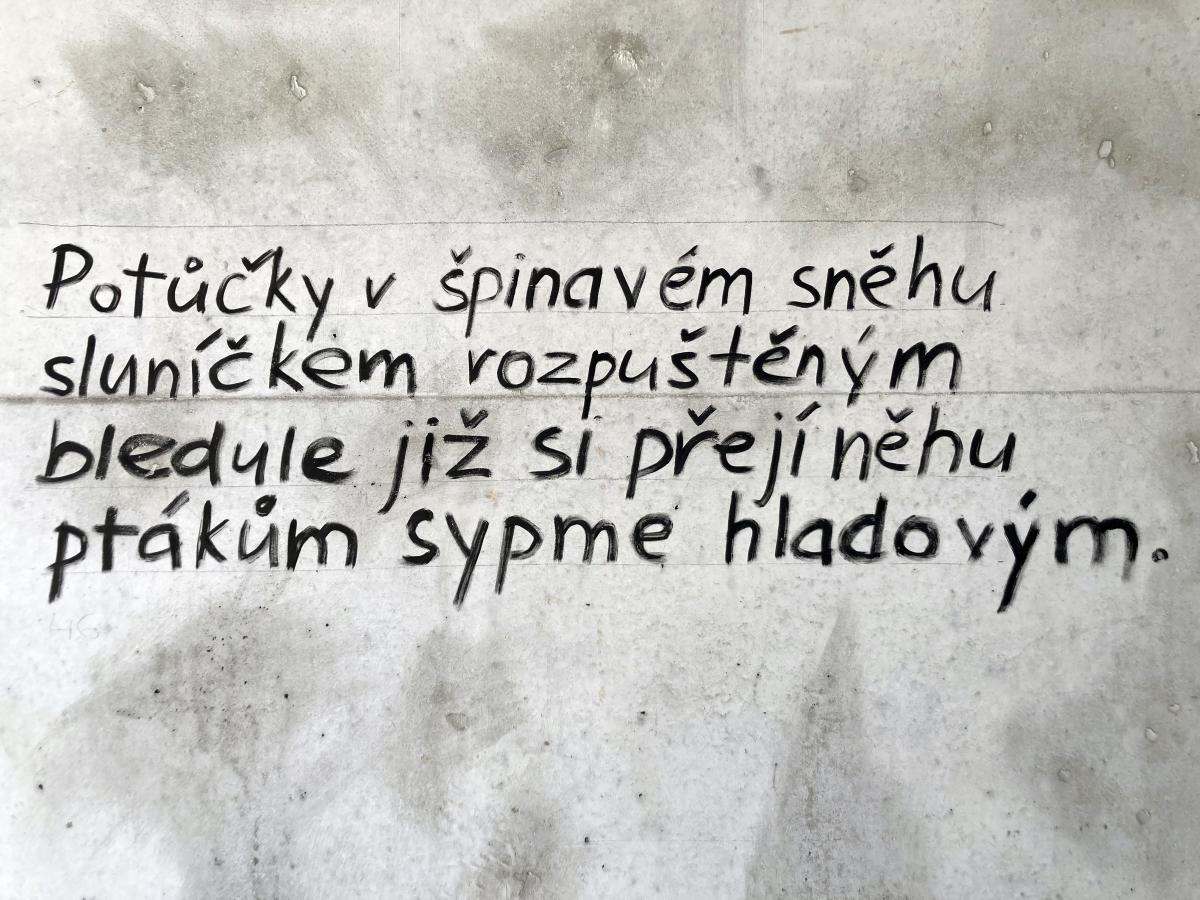 Potůčky v špinavém sněhu
sluníčkem rozpuštěným
bledule již si přejí něhu
ptákům sypme hladovým.
46